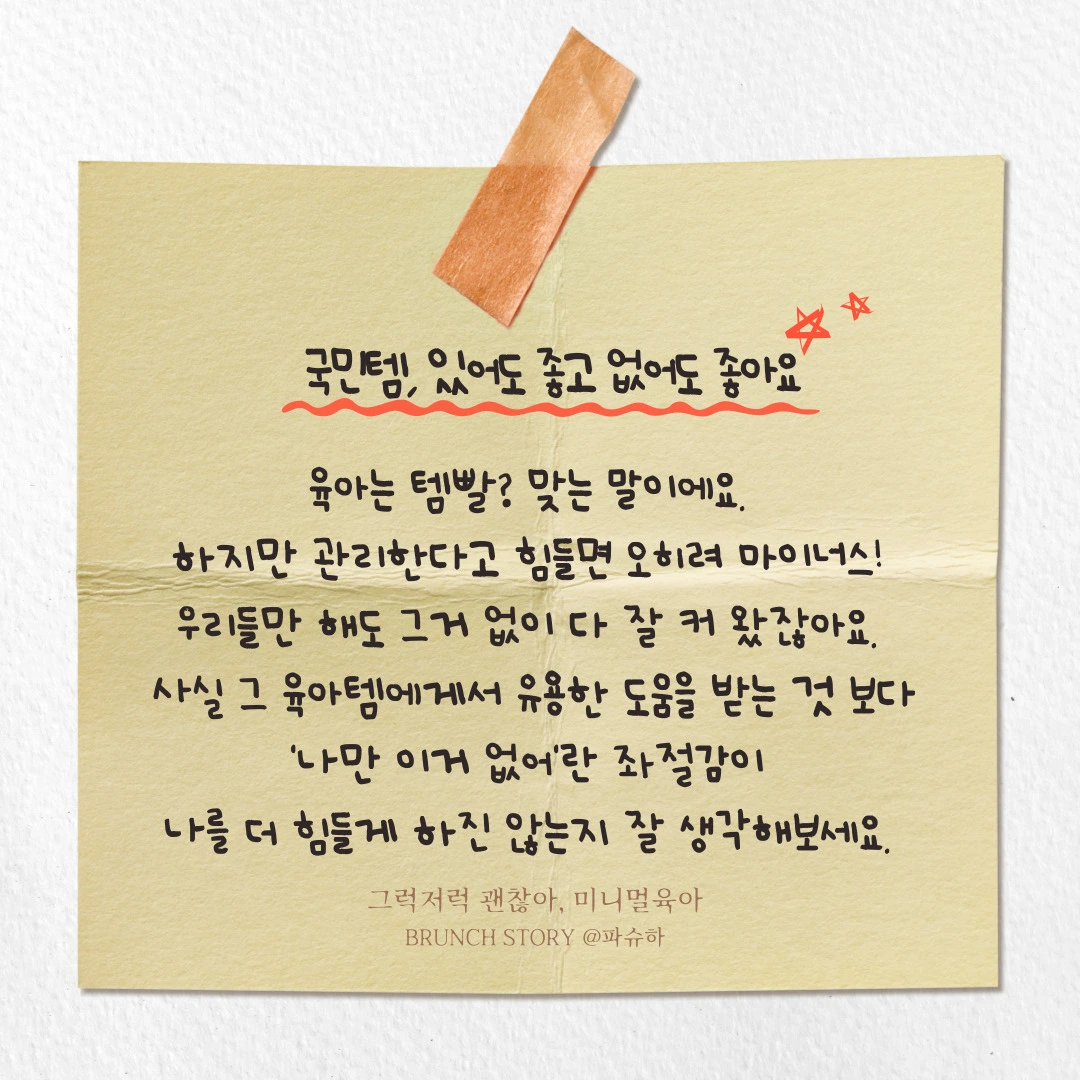 국민템, 있어도 좋고 없어도 좋아요
육아는 템빨? 맞는 말이에요.
하지만 관리한다고 힘들면 오히려 마이너스!
우리들만 해도 그거 없이 다 잘 커 왔잖아요.
사실 그 육아템에게서 유용한 도움을 받는 것 보다
'나만 이거 없어'란 좌절감이
나를 더 힘들게 하진 않는지 잘 생각해보세요.
그럭저럭 괜찮아, 미니멀육아
BRUNCH STORY @파슈하